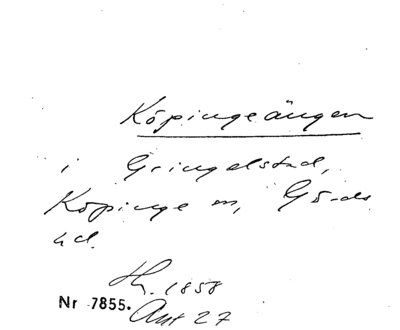 Köpingeängen
i Gringelstad,
Köpinge sn, Gärds
hd.
Th. 1858
Nr 7855.
Ant 27